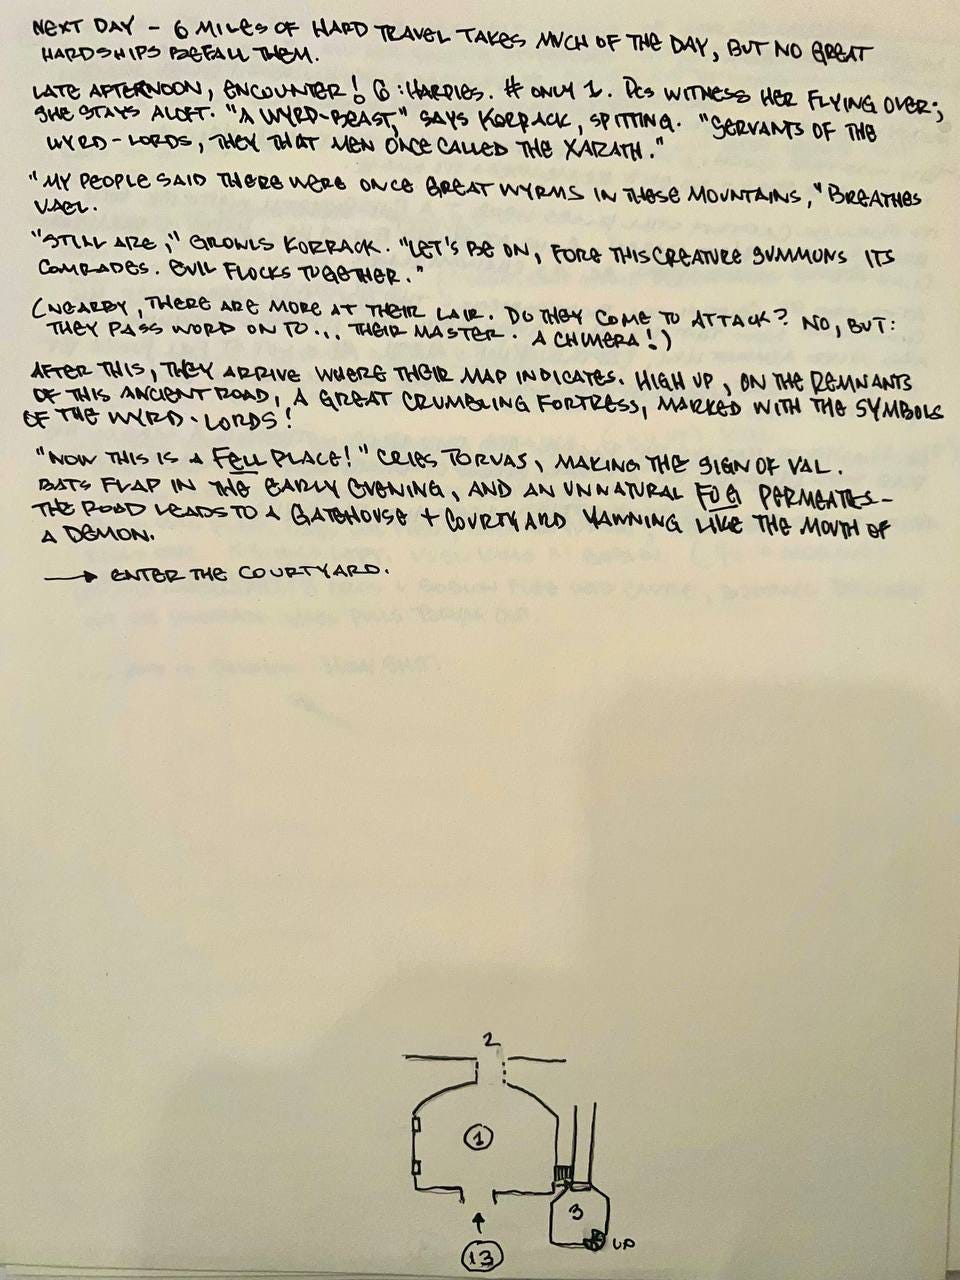 NEXT DAY - 6 MILES OF HARD TRAVEL TAKES MUCH OF THE DAY, BUT NO GREAT
HARDSHIPS BEFALL THEM.
LATE AFTERNOON, ENCOUNTER! 6: HARPIES. # ONLY 1. PCS WITNESS HER FLYING OVER;
SHE STAYS ALOFT. "A WYRD-BEAST," SAYS KORRACK, SPITTING. "SERVANTS OF THE
WYRD-LORDS, THEY THAT MEN ONCE CALLED THE XARATH."
"MY PEOPLE SAID THERE WERE ONCE GREAT WYRMS IN THESE MOUNTAINS," BREATHES
VAEL.
"STILL ARE," GROWLS KORRACK. "LET'S BE ON, FORE THIS CREATURE SUMMONS ITS
COMRADES. EVIL FLOCKS TOGETHER."
(NEARBY, THERE ARE MORE AT THEIR LAIR. DO THEY COME TO ATTACK? NO, BUT:
THEY PASS WORD ON TO... THEIR MASTER. A CHIMERA!)
AFTER THIS, THEY ARRIVE WHERE THEIR MAP INDICATES. HIGH UP, ON THE REMNANTS
OF THIS ANCIENT ROAD, A GREAT CRUMBLING FORTRESS, MARKED WITH THE SYMBOLS
OF THE WYRD-LORDS!
"NOW THIS IS A FELL PLACE!" CRIES TORVAS, MAKING THE SIGN OF VAL.
BATS FLAP IN THE EARLY EVENING, AND AN UNNATURAL FOG PERMEATES -
THE ROAD LEADS TO A GATEHOUSE + COURTYARD YAWNING LIKE THE MOUTH OF
A DEMON.
→ ENTER THE COURTYARD.
2
1
3
UP
13